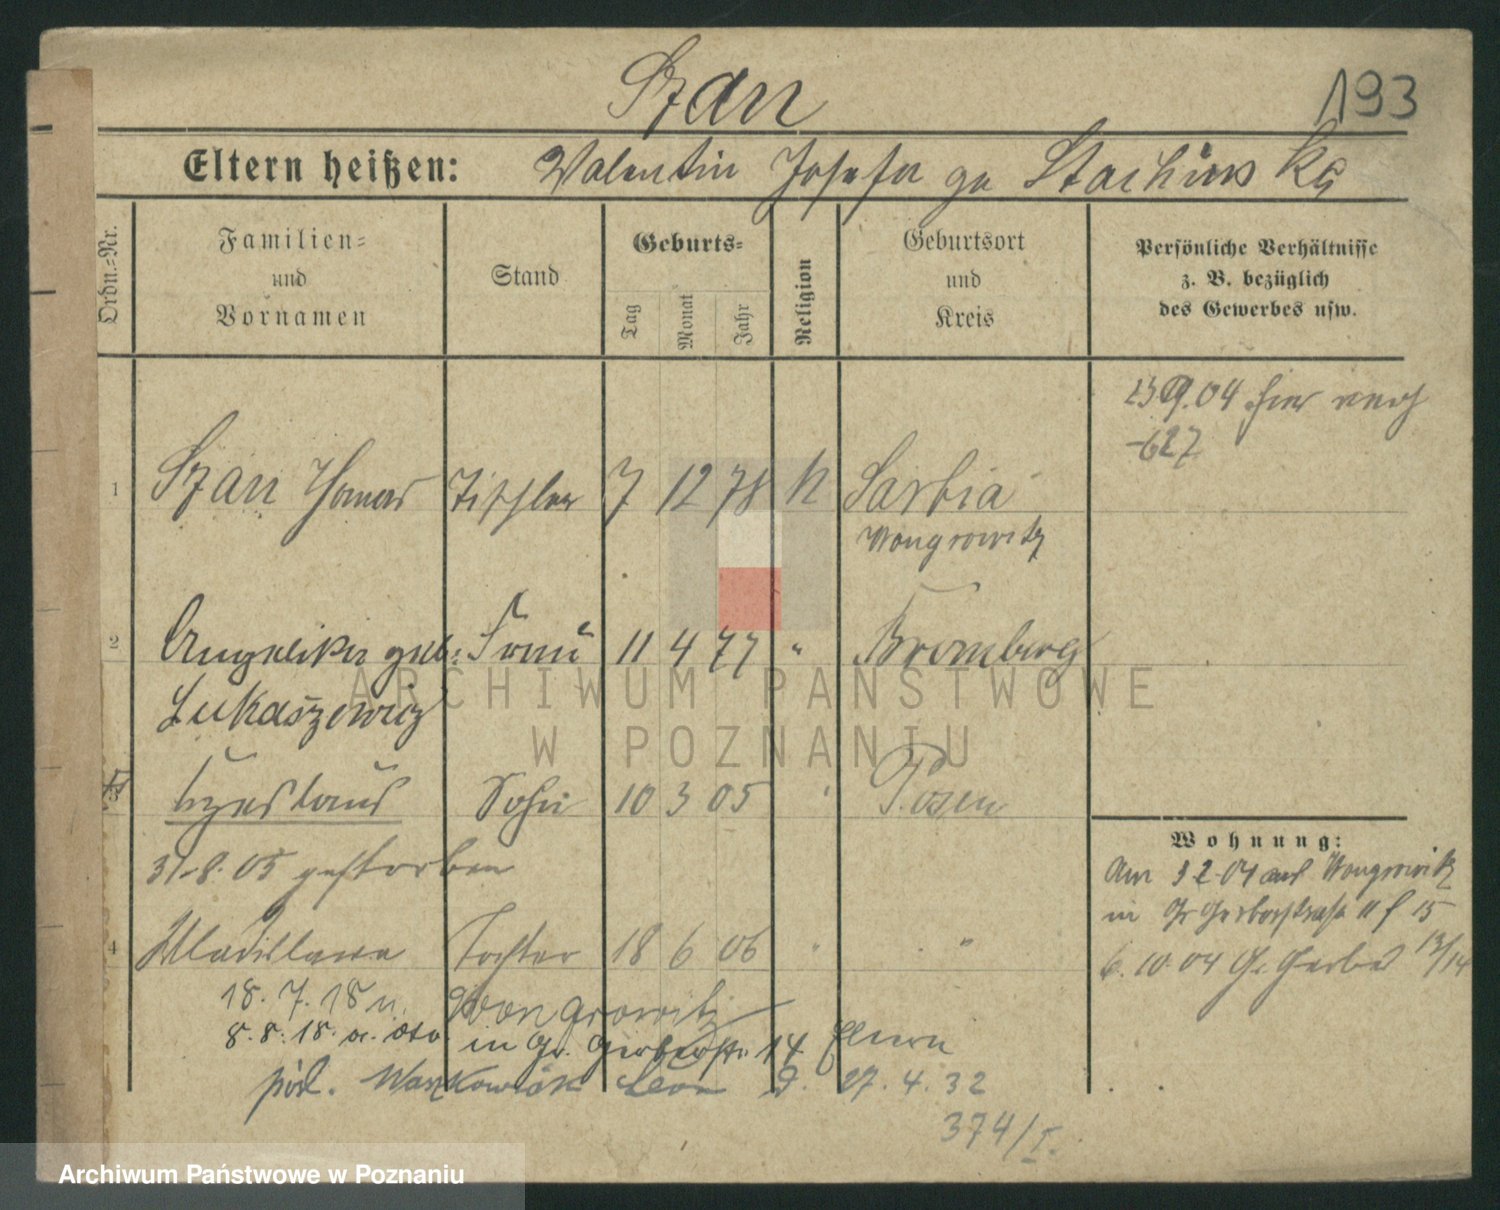 Szan
193
Eltern heißen: Valentin Josefa ge Stachinska
Ordn.-Nr.
Familien-
und
Vornamen
Stand
Geburts-
Tag
Monat
Jahr
Religion
Geburtsort
und
Kreis
Persönliche Verhältnisse
z. B. bezüglich
des Gewerbes usw.
9.04 hier
627
1 Szan Thomas Tischler 7 12 78 k Sarbia
Wongrowitz
2 Angelika geb: Frau 11 4 77 " Bromberg
Lukaszewicz
3 Czeslaus Sohn 10 3 05 " Posen
31.8.05 gestorben
4 Wladislawa Tochter 18 6 06 " "
18.7.18 n. Wongrowitz
8.8.18. a. oto in Gr. Gerberstr. 14 Eltern
Waszkowiak Leon d. 27.4.32
374/I.
Wohnung:
Am 3 2 04 aus Wongrowitz
in Gr Gerberstraße 11 f 15
6.10.04 Gr Gerber 13/14
ARCHIWUM PAŃSTWOWE
W POZNANIU
Archiwum Państwowe w Poznaniu